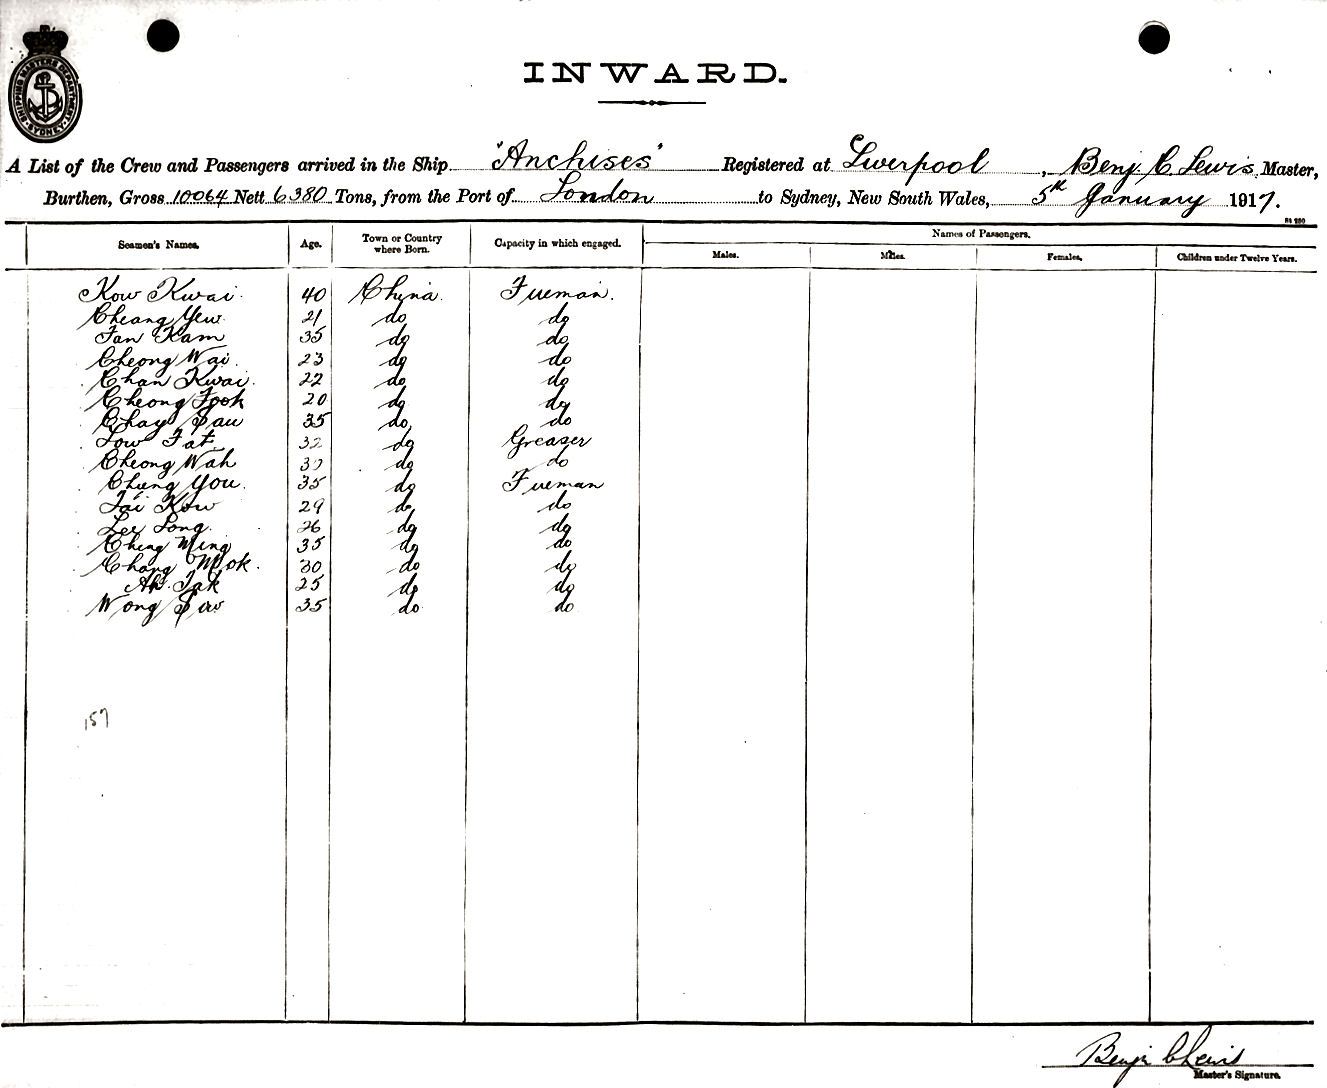 SHIPPING MASTERS DEPARTMENT SYDNEY
INWARD.
A List of the Crew and Passengers arrived in the Ship "Anchises" Registered at Liverpool, Benj. C. Lewis Master,
Burthen, Gross 10064 Nett 6380 Tons, from the Port of London to Sydney, New South Wales, 5th January 1917.
Names of Passengers.
Seamen's Names. Age. Town or Country where Born. Capacity in which engaged. Males. Males. Females. Children under Twelve Years.
Kow Kwai 40 China Fireman.
Cheang Yew 21 do do
Tan Kam 35 do do
Cheong Wai 23 do do
Chan Kwai 22 do do
Cheong Fook 20 do do
Chay Sau 35 do do
Low Fat 32 do Greaser
Cheong Wah 30 do do
Cheng You 35 do Fireman
Tai Kow 29 do do
Lee Song 26 do do
Cheng Ming 35 do do
Chang Mok 30 do do
Ah Tak 25 do do
Wong Sew 35 do do
157
Benj. C Lewis
Master's Signature.